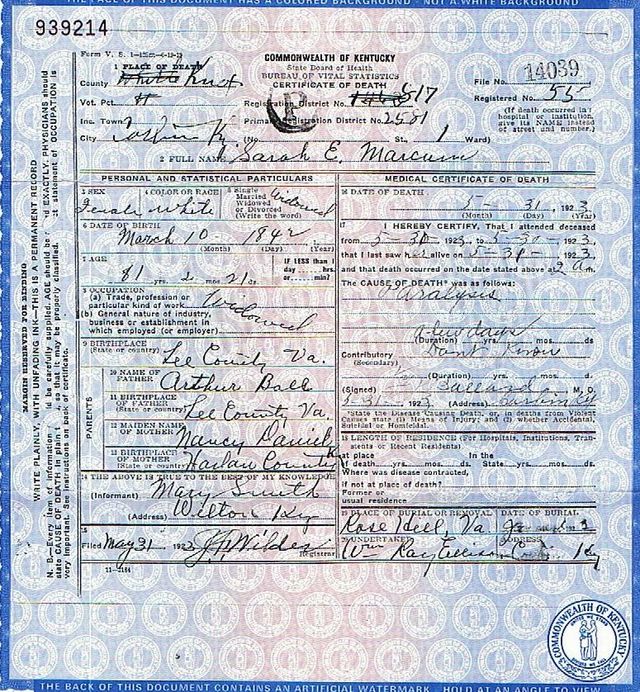 THE FACE OF THIS DOCUMENT HAS A COLORED BACKGROUND - NOT A WHITE BACKGROUND
939214
Form V. S. 1
COMMONWEALTH OF KENTUCKY
State Board of Health
BUREAU OF VITAL STATISTICS
CERTIFICATE OF DEATH
1 PLACE OF DEATH
County Knox
File No. 14039
Vot. Pct.
Registration District No. 817
Registered No. 55
Inc. Town
Primary Registration District No. 2581
(If death occurred in a hospital or institution, give its NAME instead of street and number.)
City Corbin Ky (No. St., 1 Ward)
2 FULL NAME Sarah E. Marcum
PERSONAL AND STATISTICAL PARTICULARS
3 SEX Female
4 COLOR OR RACE White
5 Single Married Widowed or Divorced (Write the word) Widowed
6 DATE OF BIRTH
March 10 1842
(Month) (Day) (Year)
7 AGE
IF LESS than 1 day hrs. or min.?
81 yrs. 2 mos. 21 ds.
8 OCCUPATION
(a) Trade, profession or particular kind of work Widowed
(b) General nature of industry, business or establishment in which employed (or employer)
9 BIRTHPLACE
(State or country) Lee County Va.
PARENTS
10 NAME OF FATHER Arthur Ball
11 BIRTHPLACE OF FATHER (State or country) Lee County Va.
12 MAIDEN NAME OF MOTHER Nancy Daniel
13 BIRTHPLACE OF MOTHER (State or country) Harlan County Ky
14 THE ABOVE IS TRUE TO THE BEST OF MY KNOWLEDGE
(Informant) Mary Smith
(Address) Wilton Ky
15
Filed May 31 1923 Wilder
Registrar
11-3184
MEDICAL CERTIFICATE OF DEATH
16 DATE OF DEATH
5 - 31, 1923
(Month) (Day) (Year)
17 I HEREBY CERTIFY, That I attended deceased
from 5-30-1923, to 5-30-1923,
that I last saw h alive on 5-30-1923,
and that death occurred on the date stated above at 2 a m.
The CAUSE OF DEATH* was as follows:
Paralysis
a few days
(Duration) yrs. mos. ds.
Contributory Dont Know
(Secondary)
(Duration) yrs. mos. ds.
(Signed) Ballard, M. D.
5-31-1923 (Address) Corbin Ky
*State the Disease Causing Death, or, in deaths from Violent Causes state (1) Means of Injury; and (2) whether Accidental, Suicidal or Homicidal.
18 LENGTH OF RESIDENCE (For Hospitals, Institutions, Transients or Recent Residents)
At place of death yrs. mos. ds. In the State yrs. mos. ds.
Where was disease contracted, if not at place of death?
Former or usual residence
19 PLACE OF BURIAL OR REMOVAL Rose Hill, Va
DATE OF BURIAL
20 UNDERTAKER
ADDRESS
MARGIN RESERVED FOR BINDING
WRITE PLAINLY, WITH UNFADING INK—THIS IS A PERMANENT RECORD
COMMONWEALTH OF KENTUCKY
THE BACK OF THIS DOCUMENT CONTAINS AN ARTIFICIAL WATERMARK - HOLD AT AN ANGLE TO VIEW